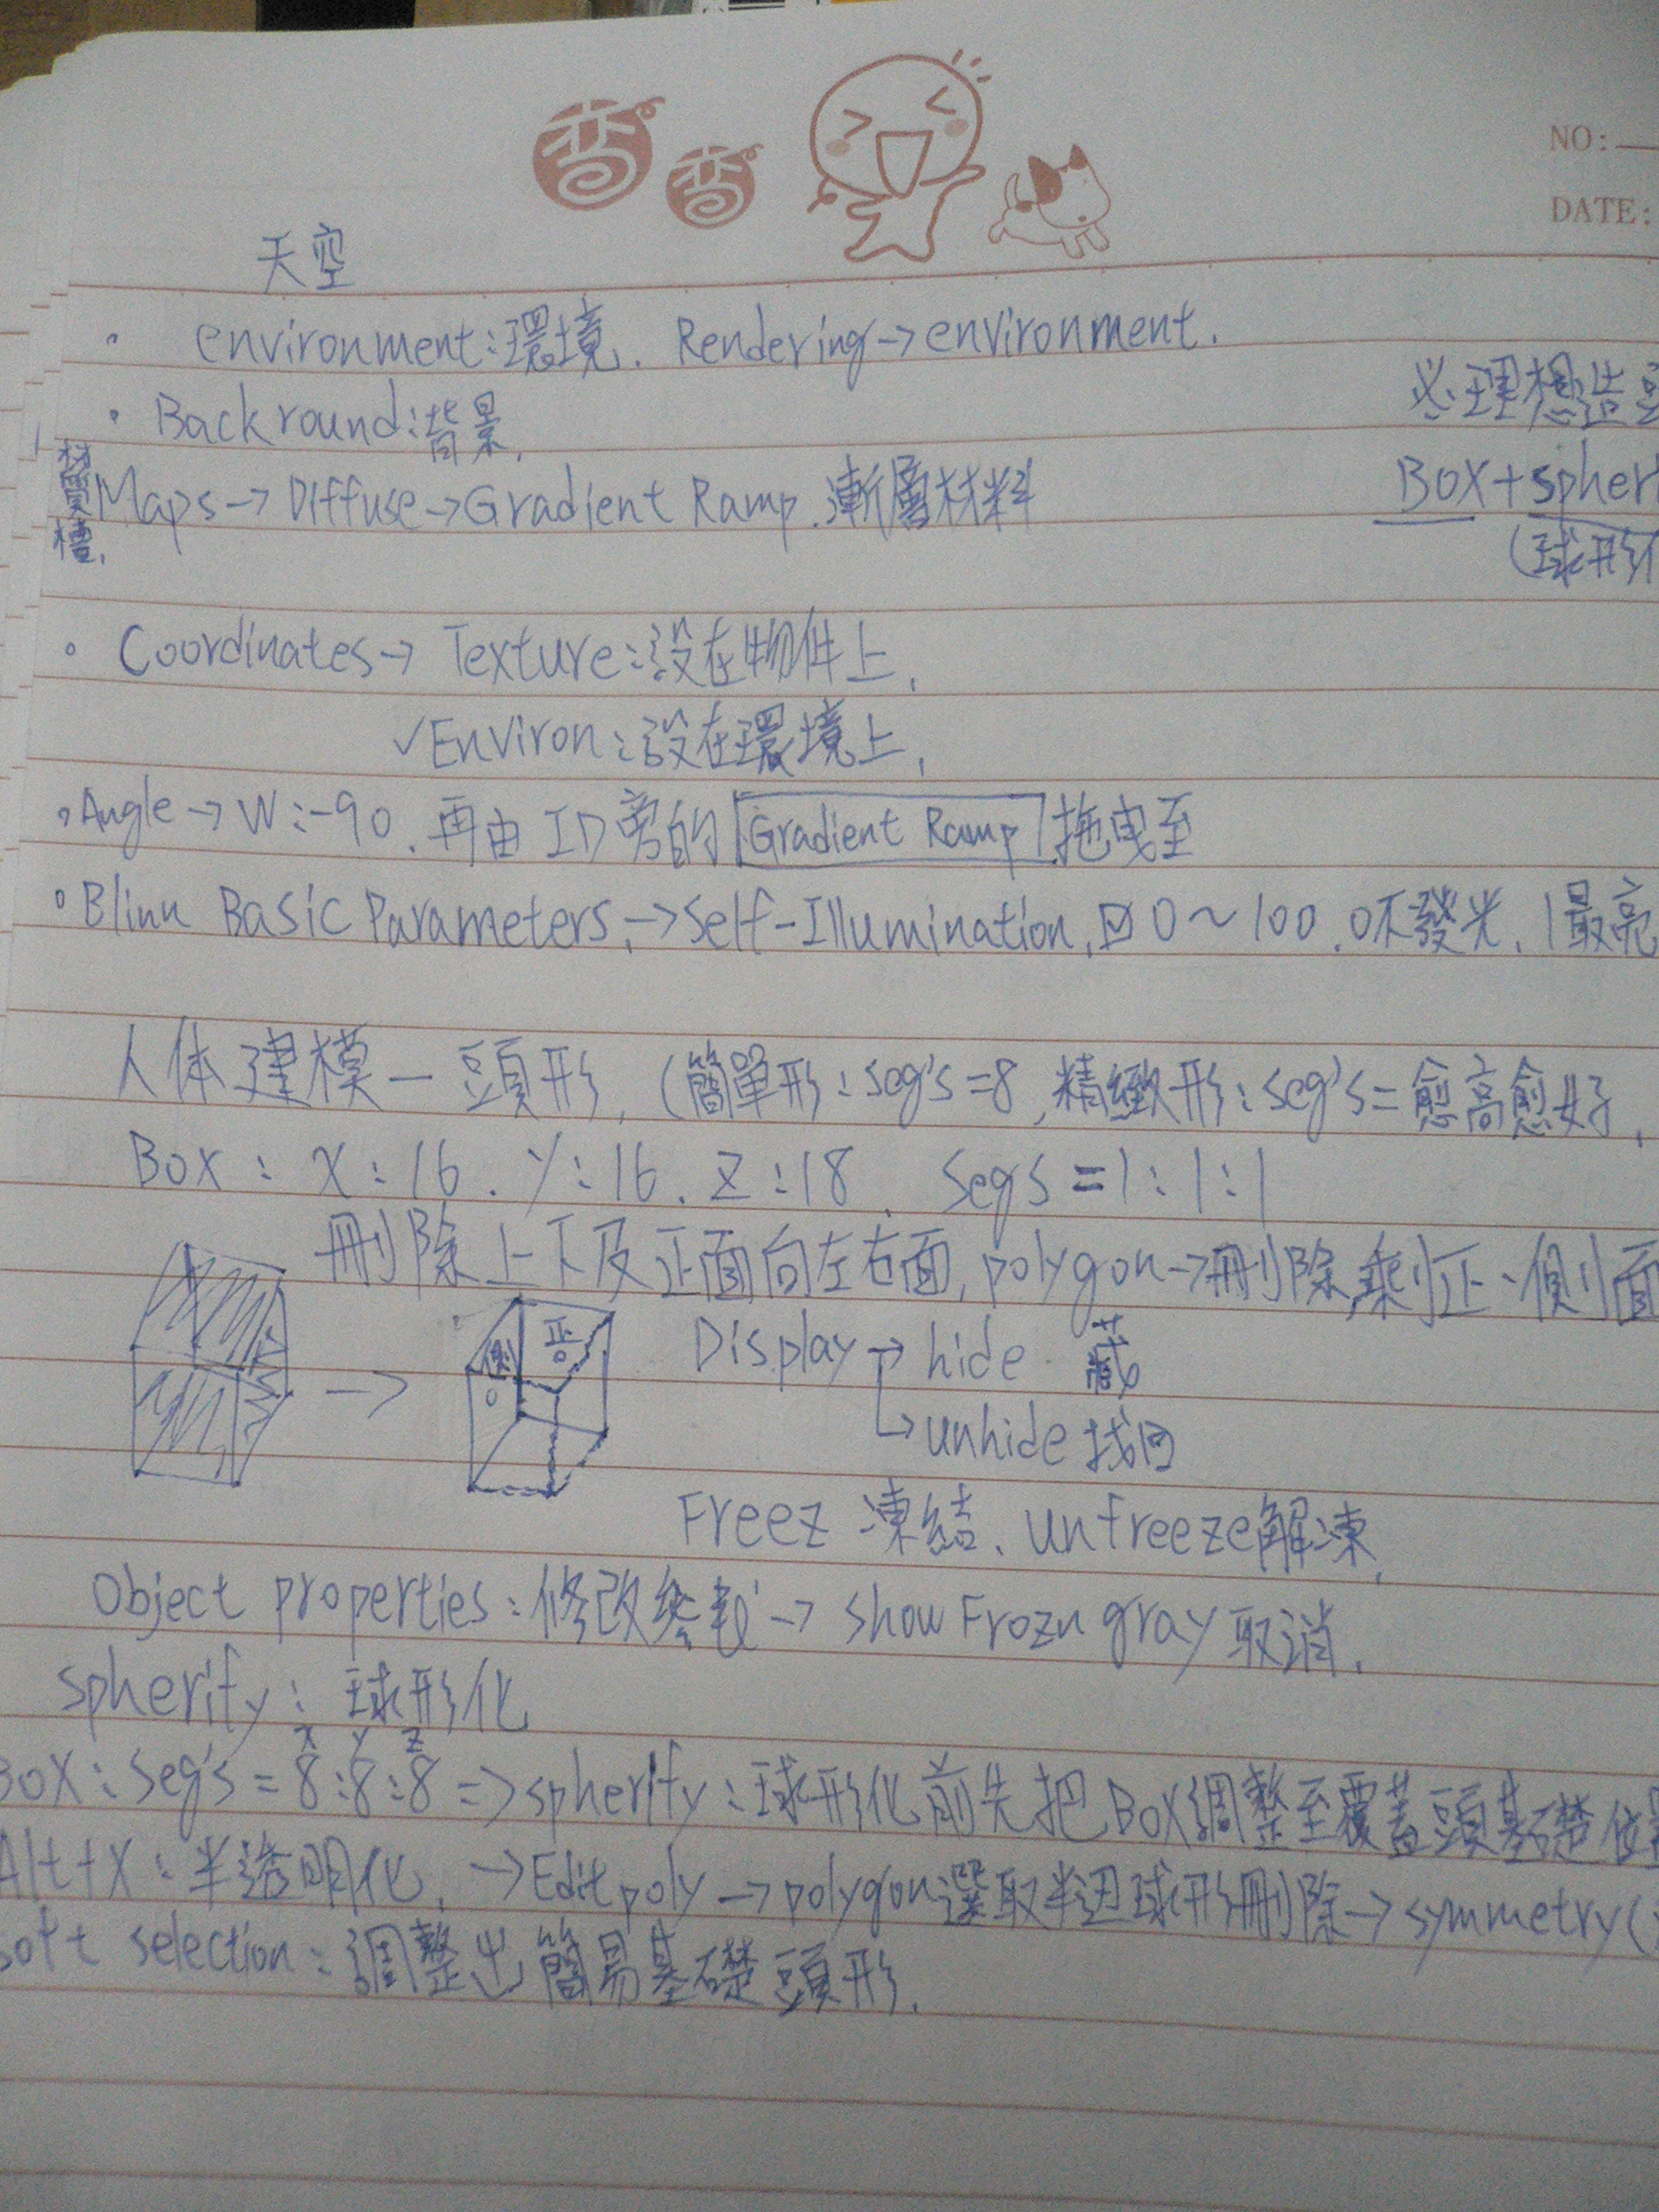 香
香
NO:
DATE:
天空
• environment:環境. Rendering→environment.
• Backround:背景.
必理想造
材質槽.
Maps→Diffuse→Gradient Ramp.漸層材料
BOX+spher
(球形化
• Coordinates→ Texture:設在物件上.
✓Environ:設在環境上.
• Angle→W:-90.再由ID旁的 Gradient Ramp 拖曳至
• Blinn Basic Parameters.→Self-Illumination.☑0~100.0不發光.1最亮
人体建模-頭形.(簡單形:seg's=8,精緻形:seg's=愈高愈好.
Box: X:16. Y:16. Z:18. Segs=1:1:1
刪除上下及正面向左右面,polygon→刪除剩正、側面
側 正
Display→hide 藏
→unhide找回
Freez 凍結、unfreeze解凍.
Object properties:修改 → show Frozn gray取消.
spherify:球形化
X Y Z
Box:Seg's=8:8:8=>spherify:球形化前先把Box調整至覆蓋頭基礎位置
Alt+X:半透明化.→Edit poly→polygon選取半边球形刪除→symmetry(
soft selection:調整出簡易基礎頭形.